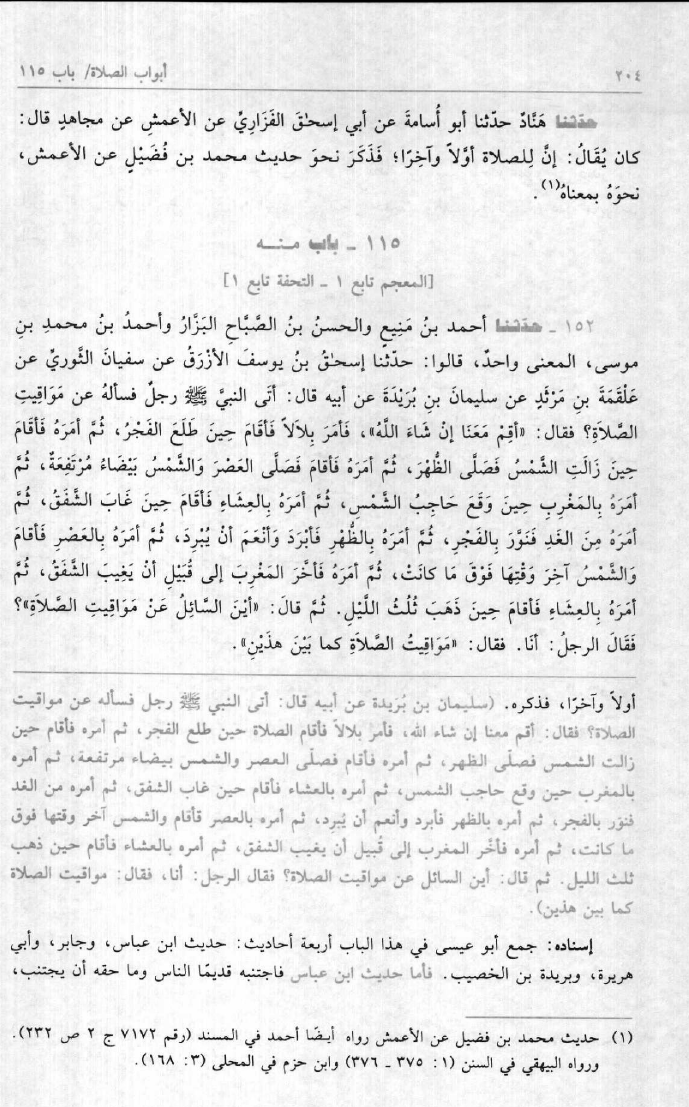 ٢٠٤ أبواب الصلاة/ باب ١١٥
حدّثنا هَنَّادٌ حدّثنا أبو أُسامةَ عن أبي إسحٰقَ الفَزَارِيِّ عن الأعمشِ عن مجاهدٍ قال:
كان يُقَالُ: إنَّ لِلصلاة أوَّلاً وآخِرًا؛ فَذَكَرَ نحوَ حديث محمد بن فُضَيْلٍ عن الأعمش،
نحوَهُ بمعناهُ(١).
١١٥ ـ باب منـه
[المعجم تابع ١ ـ التحفة تابع ١]
١٥٢ ـ حدّثنا أحمد بنُ مَنِيعٍ والحسنُ بنُ الصَّبَّاحِ البَزَّارُ وأحمدُ بنُ محمدِ بنِ
موسى، المعنى واحدٌ، قالوا: حدّثنا إسحٰقُ بنُ يوسفَ الأزْرَقُ عن سفيانَ الثَّوريِّ عن
عَلْقَمَةَ بنِ مَرْثَدٍ عن سليمانَ بنِ بُرَيْدَةَ عن أبيه قال: أتَى النبيَّ ﷺ رجلٌ فسألهُ عن مَوَاقِيتِ
الصَّلاَةِ؟ فقال: «أقِمْ مَعَنَا إنْ شَاءَ اللَّهُ»، فَأمَرَ بِلاَلاً فأقَامَ حِينَ طَلَعَ الفَجْرُ، ثُمَّ أمَرَهُ فَأقَامَ
حِينَ زَالَتِ الشَّمْسُ فَصَلَّى الظُّهْرَ، ثُمَّ أمَرَهُ فَأقامَ فَصَلَّى العَصْرَ وَالشَّمْسُ بَيْضَاءُ مُرْتَفِعَةٌ، ثُمَّ
أمَرَهُ بِالمَغْرِبِ حِينَ وَقَعَ حَاجِبُ الشَّمْسِ، ثُمَّ أمَرَهُ بِالعِشَاءِ فَأقَامَ حِينَ غَابَ الشَّفَقُ، ثُمَّ
أمَرَهُ مِنَ الغَدِ فَنَوَّرَ بِالفَجْرِ، ثُمَّ أمَرَهُ بِالظُّهْرِ فَأبْرَدَ وَأنْعَمَ أنْ يُبْرِدَ، ثُمَّ أمَرَهُ بِالعَصْرِ فَأقامَ
وَالشَّمْسُ آخِرَ وَقْتِهَا فَوْقَ مَا كانَتْ، ثُمَّ أمَرَهُ فَأخَّرَ المَغْرِبَ إلى قُبَيْلِ أنْ يَغِيبَ الشَّفَقُ، ثُمَّ
أمَرَهُ بِالعِشَاءِ فَأقامَ حِينَ ذَهَبَ ثُلُثُ اللَّيْلِ. ثُمَّ قالَ: «أيْنَ السَّائِلُ عَنْ مَوَاقِيتِ الصَّلاَةِ»؟
فَقَالَ الرجلُ: أنَا. فقال: «مَوَاقِيتُ الصَّلاَةِ كما بَيْنَ هذَيْنِ».
أولاً وآخرًا، فذكره. (سليمان بن بُرَيدة عن أبيه قال: أتى النبي ﷺ رجل فسأله عن مواقيت
الصلاة؟ فقال: أقم معنا إن شاء الله، فأمر بلالاً فأقام الصلاة حين طلع الفجر، ثم أمره فأقام حين
زالت الشمس فصلّى الظهر، ثم أمره فأقام فصلّى العصر والشمس بيضاء مرتفعة، ثم أمره
بالمغرب حين وقع حاجب الشمس، ثم أمره بالعشاء فأقام حين غاب الشفق، ثم أمره من الغد
فنوّر بالفجر، ثم أمره بالظهر فأبرد وأنعم أن يُبرِد، ثم أمره بالعصر قأقام والشمس آخر وقتها فوق
ما كانت، ثم أمره فأخَّر المغرب إلى قُبيل أن يغيب الشفق، ثم أمره بالعشاء فأقام حين ذهب
ثلث الليل. ثم قال: أين السائل عن مواقيت الصلاة؟ فقال الرجل: أنا، فقال: مواقيت الصلاة
كما بين هذين).
إسناده: جمع أبو عيسى في هذا الباب أربعة أحاديث: حديث ابن عباس، وجابر، وأبي
هريرة، وبريدة بن الخصيب. فأما حديث ابن عباس فاجتنبه قديمًا الناس وما حقه أن يجتنب،
(١) حديث محمد بن فضيل عن الأعمش رواه أيضًا أحمد في المسند (رقم ٧١٧٢ ج ٢ ص ٢٣٢).
ورواه البيهقي في السنن (١: ٣٧٥ ـ ٣٧٦) وابن حزم في المحلى (٣: ١٦٨).